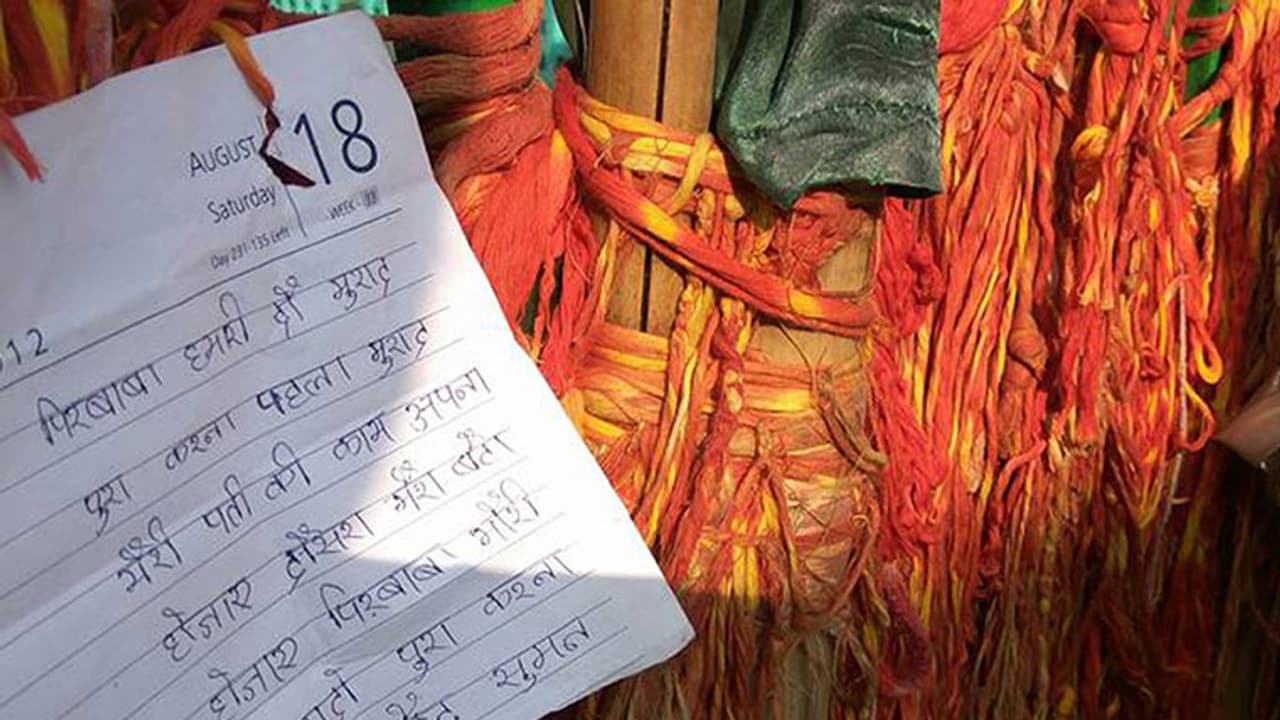 AUGUST 18
Saturday WEEK - 33
Day 231-135 Left
012
पिरबाबा हमरी दों मुराद
पुरा करना पहला मुराद
मेंरी पती की काम अपना
होजाए दोंसरा मेंरा बेंटा
होजाए पिरबाबा मोंरी
पुरा करना
सुमन